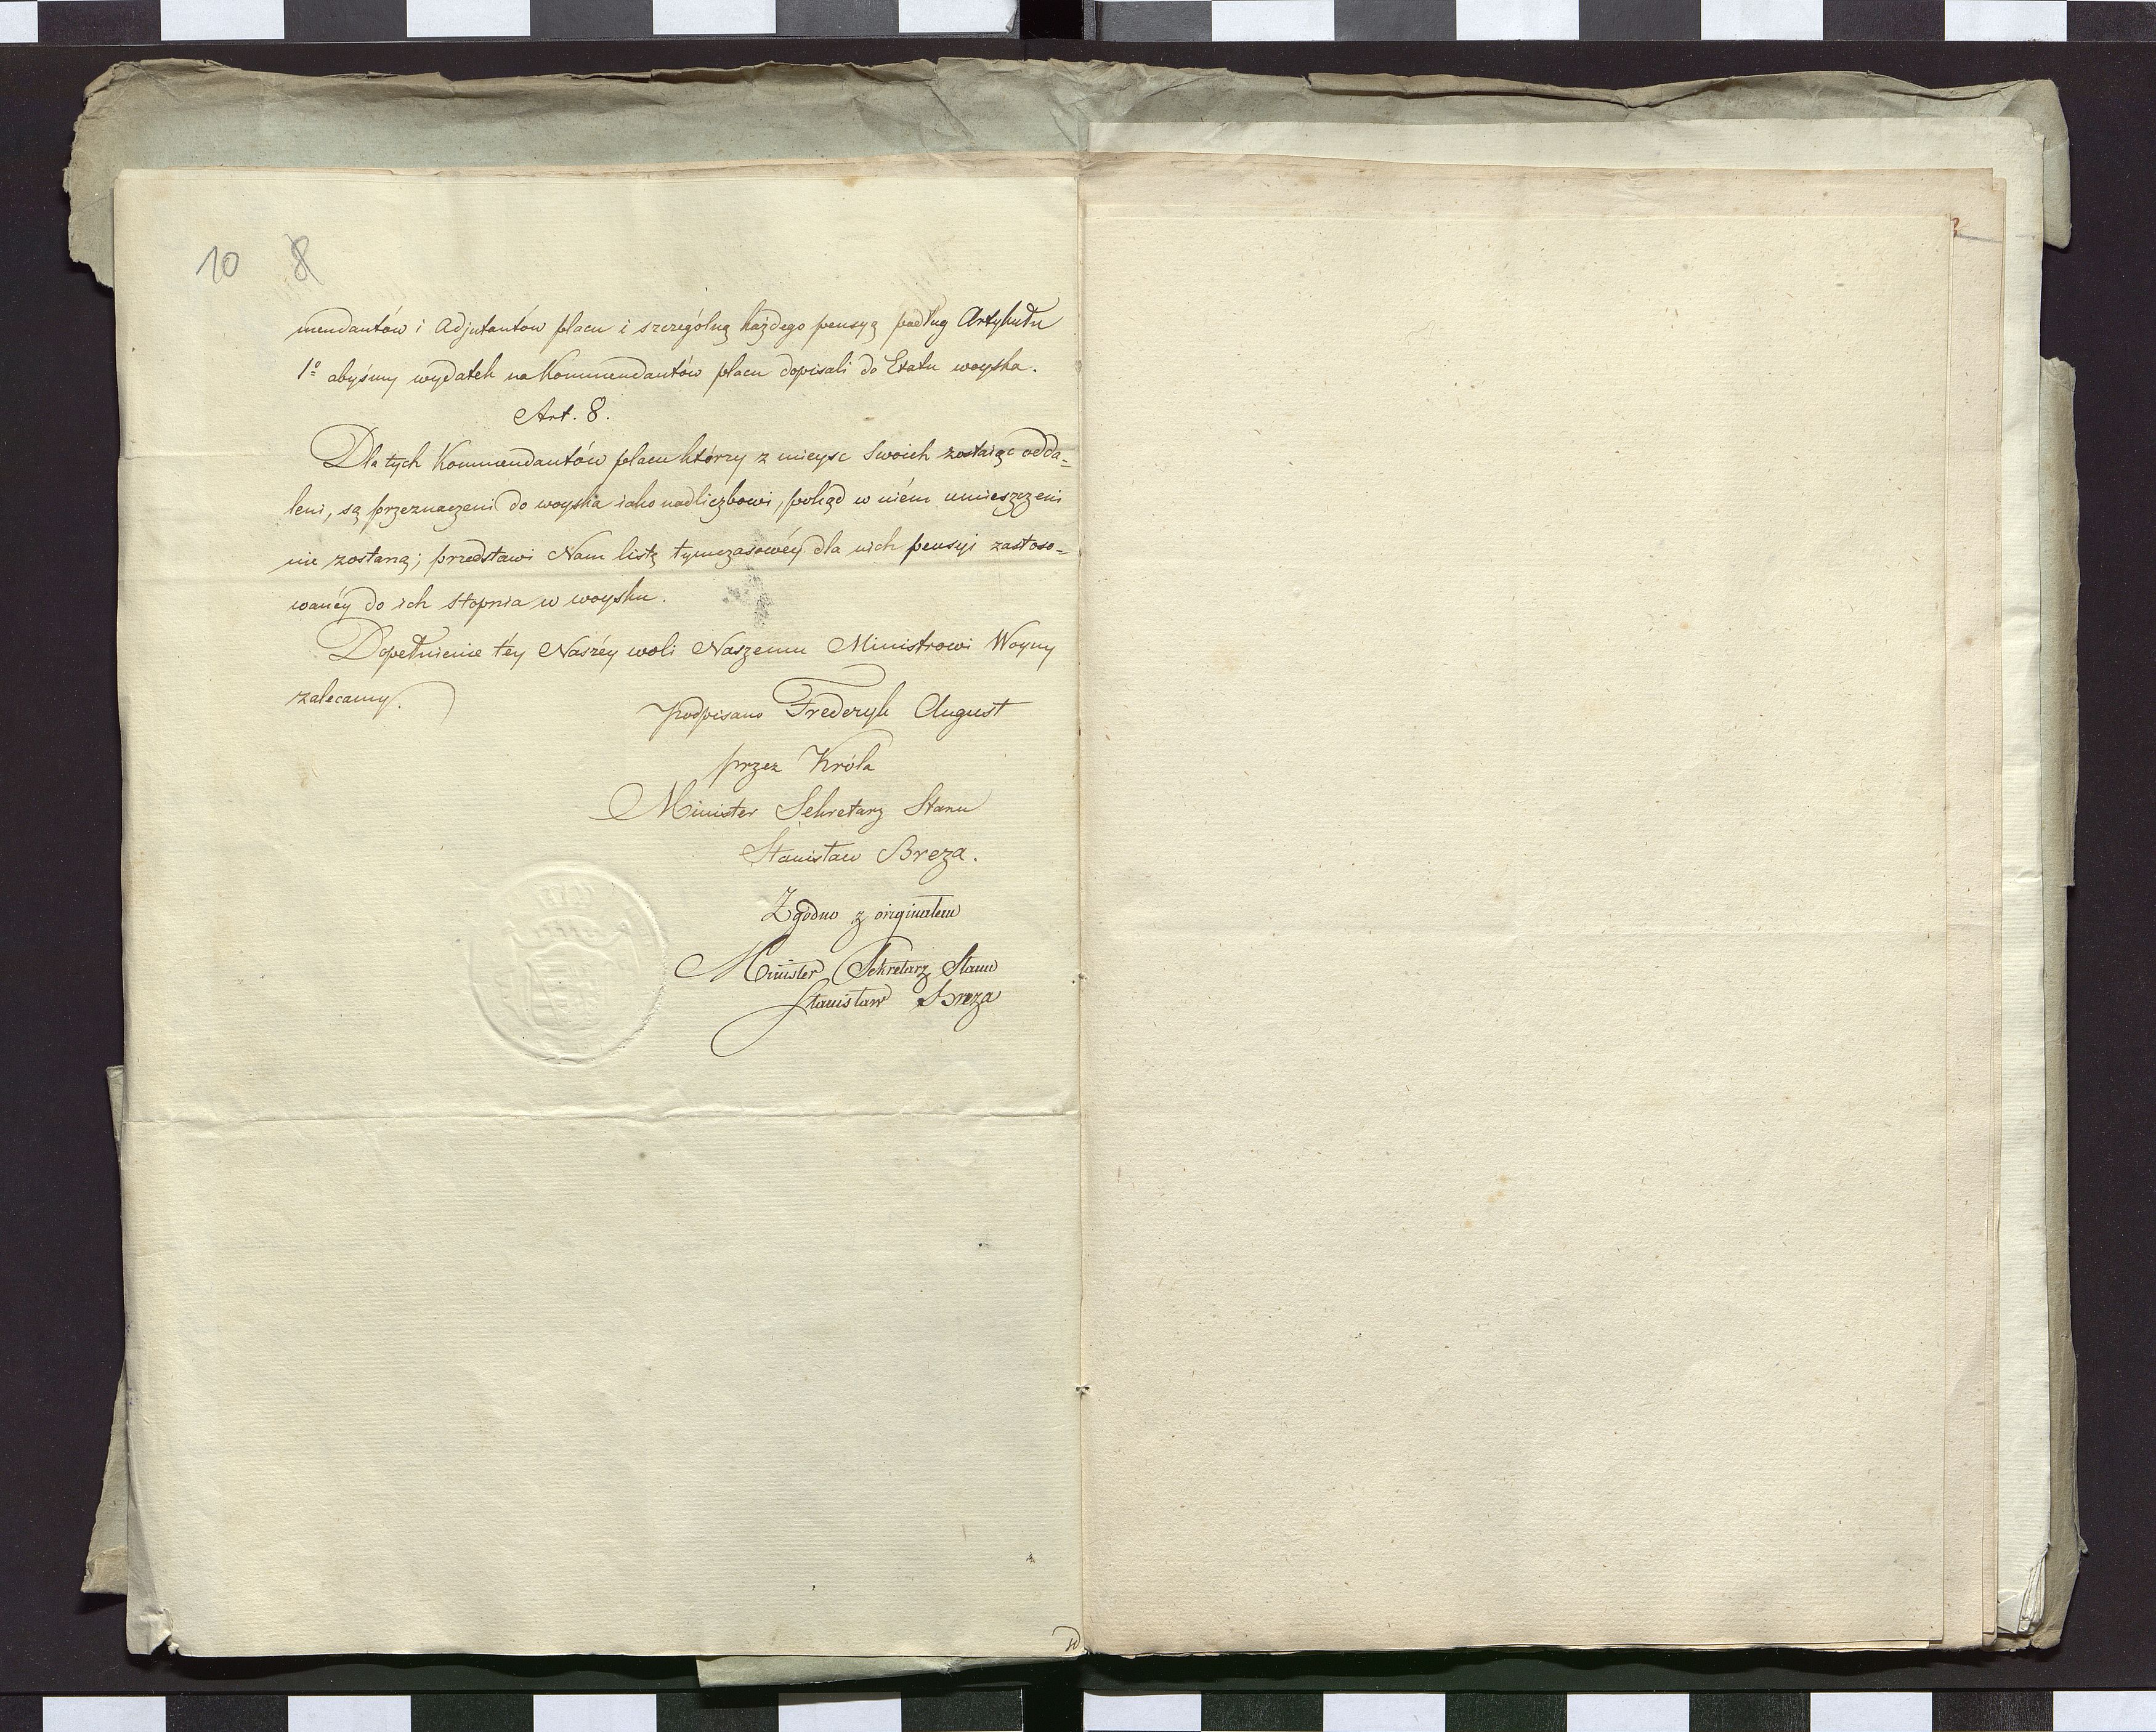 10 8
mendantów i Adjutantów placu i szczególną każdego pensyą podług Artykułu
1º abyśmy wydatek na Kommendantów placu dopisali do Etatu woyska.
Art. 8.
Dla tych Kommendantów placu którzy z mieysc Swoich zostaiąc odda=
leni, są przeznaczeni do woyska iako nadliczbowi, pokąd w niém umieszczeni
nie zostaną; przedstawi Nam listę tymczasowéy dla nich pensyi zastoso=
wanéy do ich stopnia w woysku.
Dopełnienie téy Naszéy woli Naszemu Ministrowi Woyny
zalecamy.
Podpisano Frederyk August
przez Króla
Minister Sekretarz Stanu
Stanisław Breza.
Zgodno z originałem
Minister Sekretarz Stanu
Stanisław Breza